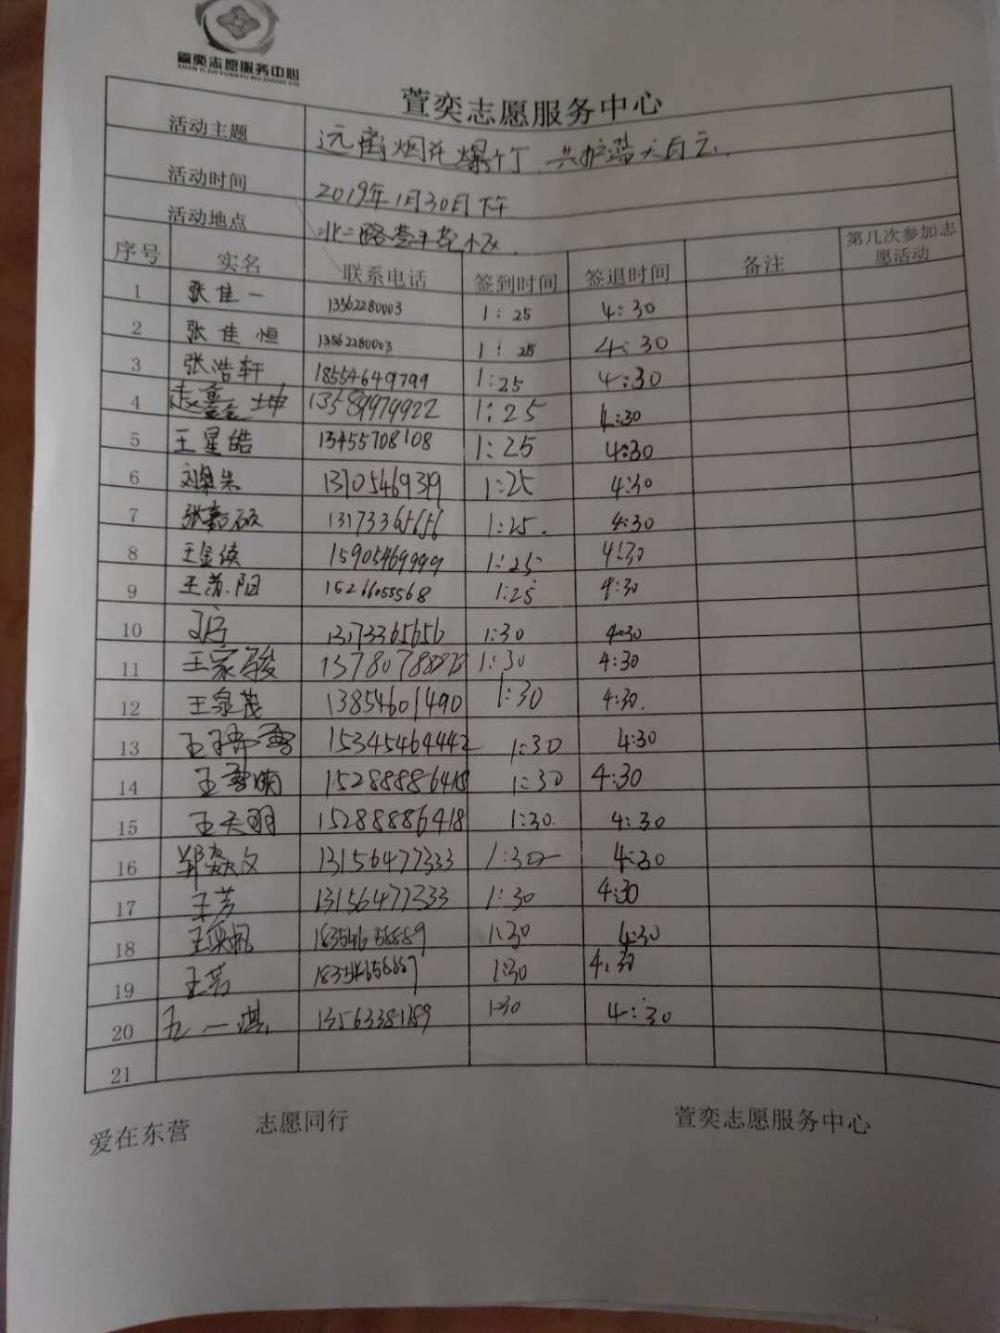 萱奕志愿服务中心
XUAN YI ZHI YUAN FU WU ZHONG XIN
萱奕志愿服务中心
活动主题 远离烟花爆竹 共护蓝天白云.
活动时间 2019年1月30日下午
活动地点 北二路
序号 实名 联系电话 签到时间 签退时间 备注 第几次参加志愿活动
1 张佳一 13562280003 1:25 4:30
2 张佳恒 13562280003 1:25 4:30
3 张浩轩 18554649799 1:25 4:30
4 赵鑫坤 13589979922 1:25 4:30
5 王星皓 13455708108 1:25 4:30
6 1:25 4:30
7 张嘉硕 13173365656 1:25. 4:30
8 王金续 15905469999 1:25 4:30
9 王苏阳 1:25 4:30
10 13173365656 1:30 4:30
11 王家骏 1:30 4:30
12 王泉茂 13854601490 1:30 4:30.
13 15345464442 1:30 4:30
14 15288886418 1:30 4:30
15 王天明 15288886418 1:30. 4:30
16 郑 13156477333 1:30 4:30
17 王芳 13156477333 1:30 4:30
18 1:30 4:30
19 王芳 1:30 4:30
20 一 1:30 4:30
21
爱在东营 志愿同行 萱奕志愿服务中心